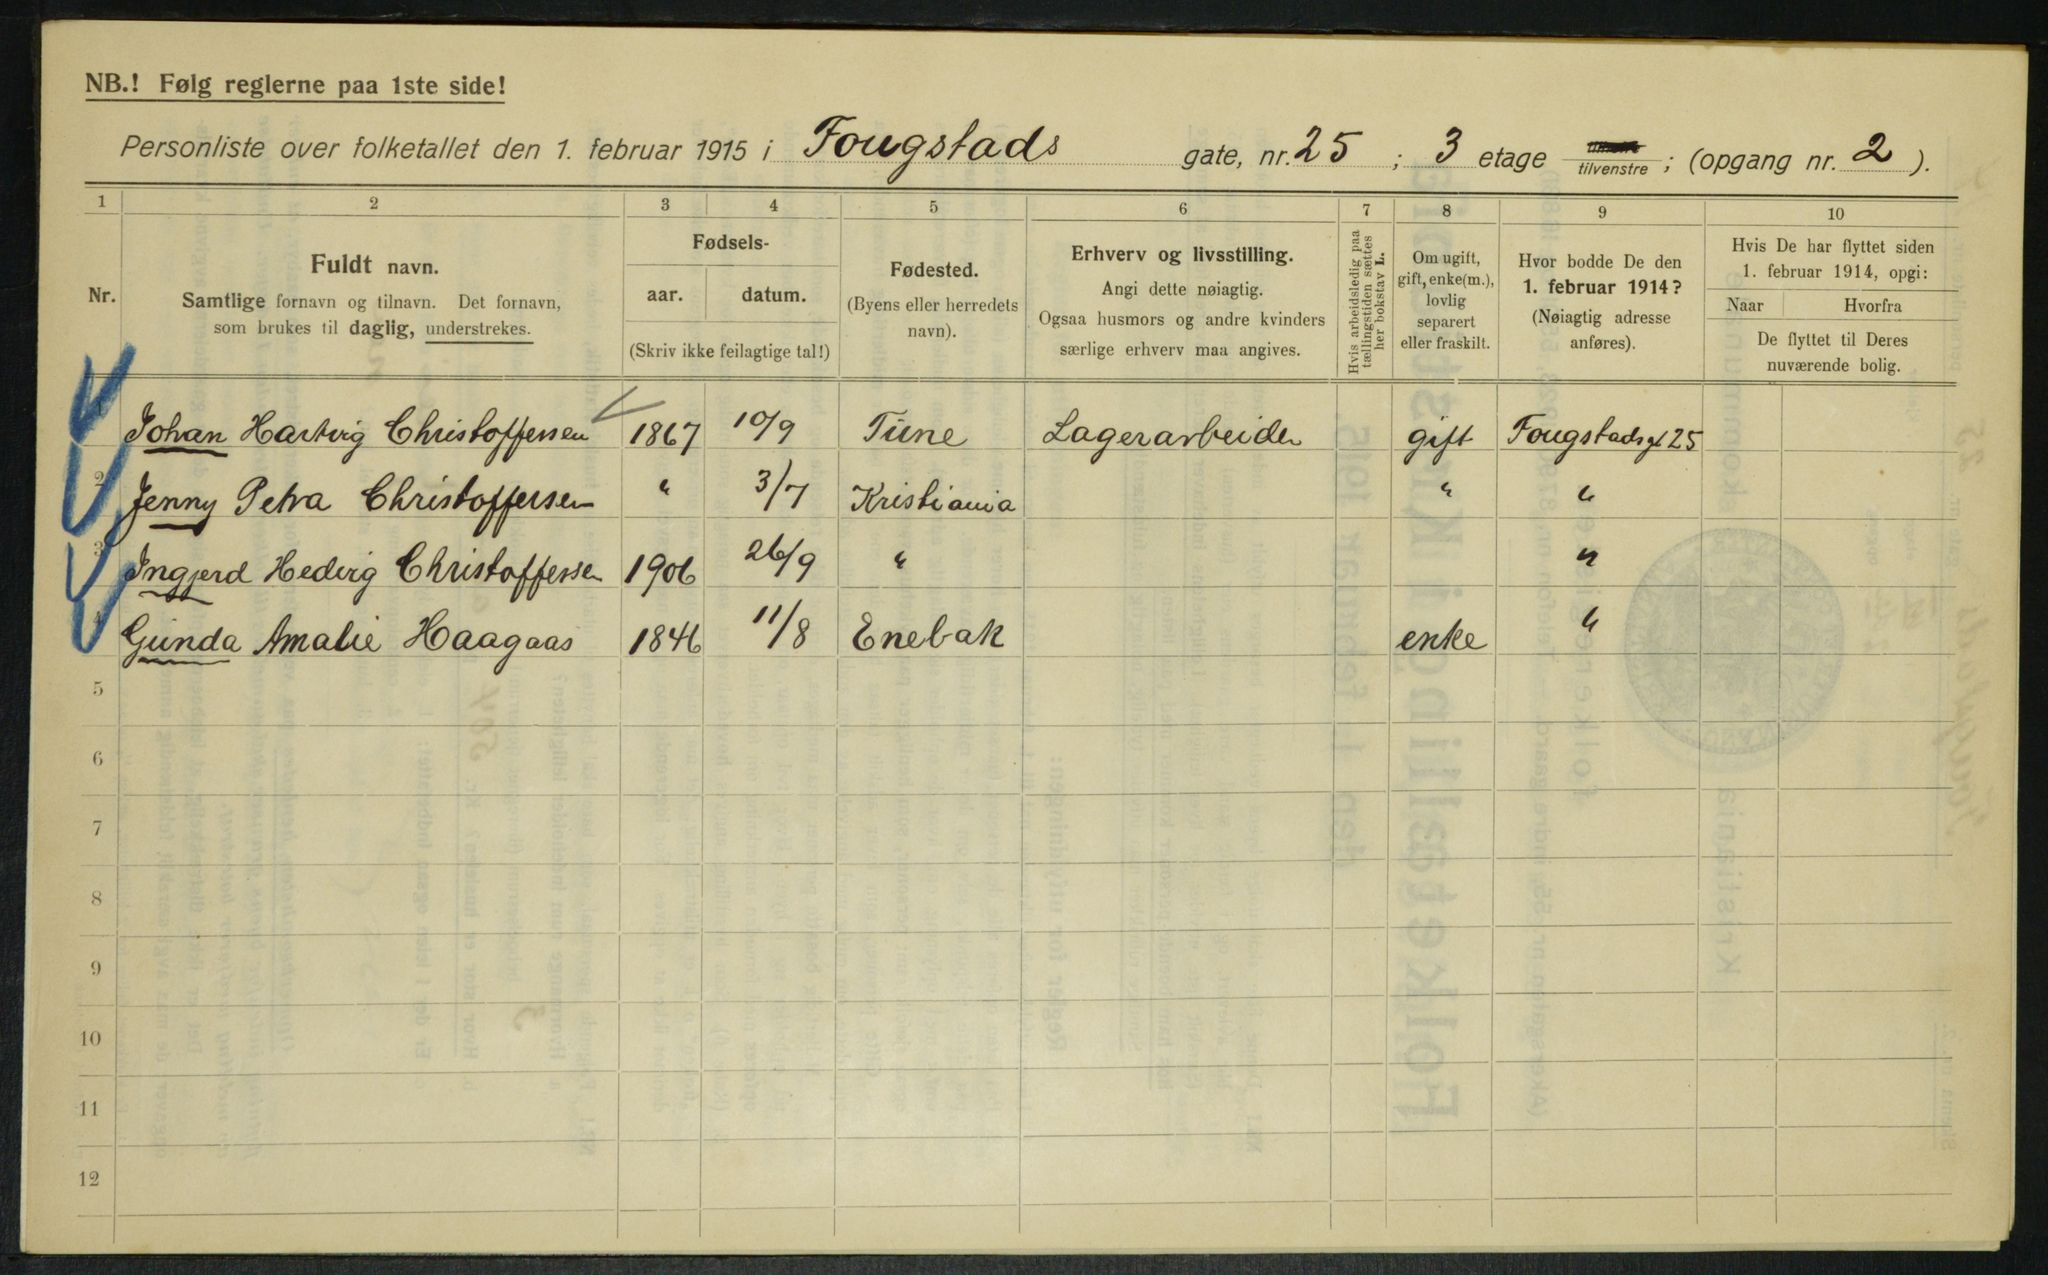 NB.! Følg reglerne paa 1ste side!
Personliste over folketallet den 1. februar 1915 i Fougstads gate, nr. 25 ; 3 etage tilvenstre ; (opgang nr. 2 ).
1 2 3 4 5 6 7 8 9 10
Nr.
Fuldt navn.
Samtlige fornavn og tilnavn. Det fornavn,
som brukes til daglig, understrekes.
Fødsels-
aar. datum.
(Skriv ikke feilagtige tal!)
Fødested.
(Byens eller herredets
navn).
Erhverv og livsstilling.
Angi dette nøiagtig.
Ogsaa husmors og andre kvinders
særlige erhverv maa angives.
Hvis arbeidsledig paa
tællingstiden sættes
her bokstav L.
Om ugift,
gift, enke(m.),
lovlig
separert
eller fraskilt.
Hvor bodde De den
1. februar 1914?
(Nøiagtig adresse
anføres).
Hvis De har flyttet siden
1. februar 1914, opgi:
Naar Hvorfra
De flyttet til Deres
nuværende bolig.
1 Johan Hartvig Christoffersen 1867 10/9 Tune Lagerarbeider gift Fougstadsgt 25
2 Jenny Petra Christoffersen " 3/7 Kristiania " "
3 Ingjerd Hedvig Christoffersen 1906 26/9 " "
4 Gunda Amalie Haagaas 1846 11/8 Enebak enke "
5
6
7
8
9
10
11
12